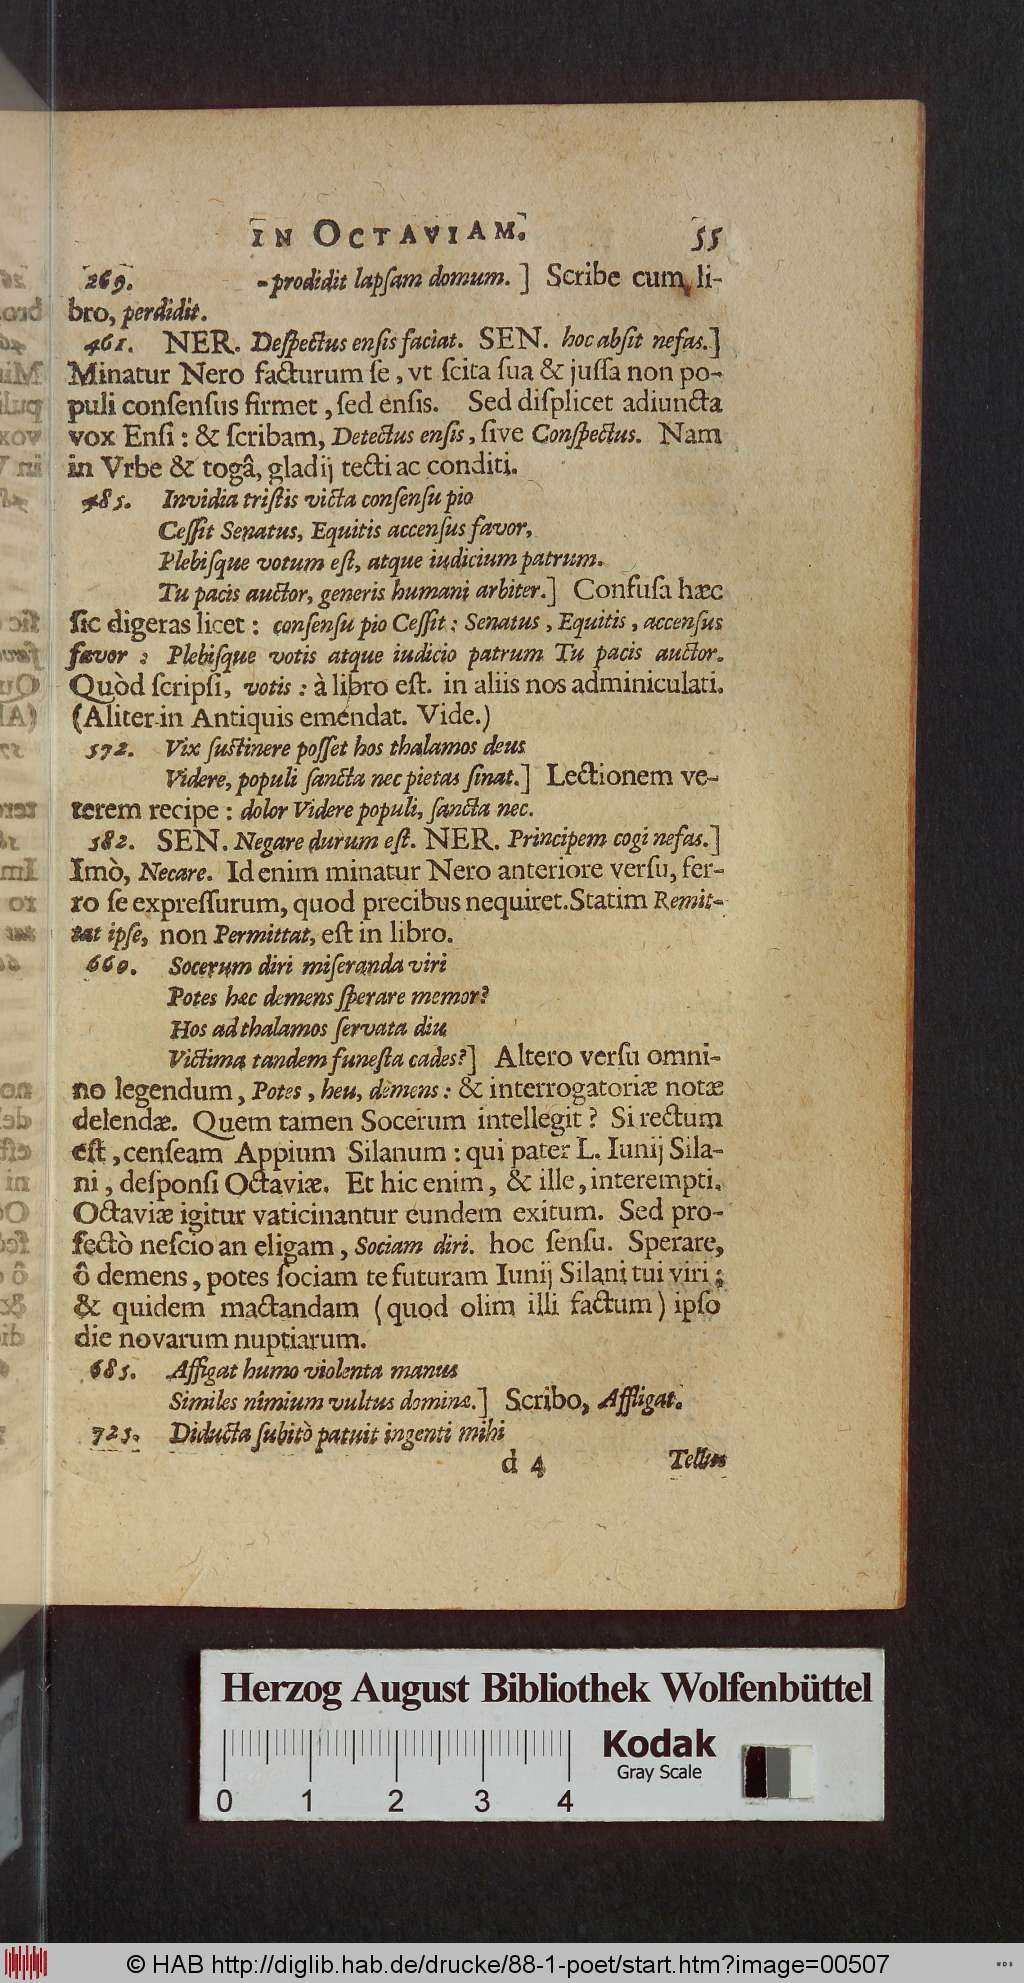 IN OCTAVIAM. 55
269. -prodidit lapſam domum. ] Scribe cum li-
bro, perdidit.
461. NER. Deſpectus enſis faciat. SEN. hoc abſit nefas.]
Minatur Nero facturum ſe, vt ſcita ſua & juſſa non po-
puli conſenſus firmet, ſed enſis. Sed diſplicet adiuncta
vox Enſi: & ſcribam, Detectus enſis, ſive Conſpectus. Nam
in Vrbe & togâ, gladij tecti ac conditi.
485. Invidia triſtis victa conſenſu pio
Ceſſit Senatus, Equitis accenſus favor,
Plebiſque votum eſt, atque iudicium patrum.
Tu pacis auctor, generis humani arbiter.] Confuſa hæc
ſic digeras licet: conſenſu pio Ceſſit: Senatus, Equitis, accenſus
favor: Plebiſque votis atque iudicio patrum Tu pacis auctor.
Quòd ſcripſi, votis: à libro eſt. in aliis nos adminiculati.
(Aliter in Antiquis emendat. Vide.)
572. Vix ſuſtinere poſſet hos thalamos deus
Videre, populi ſancta nec pietas ſinat.] Lectionem ve-
terem recipe: dolor Videre populi, ſancta nec.
582. SEN. Negare durum eſt. NER. Principem cogi nefas.]
Imò, Necare. Id enim minatur Nero anteriore verſu, fer-
ro ſe expreſſurum, quod precibus nequiret. Statim Remit-
tat ipſe, non Permittat, eſt in libro.
660. Socerum diri miſeranda viri
Potes hæc demens ſperare memor?
Hos ad thalamos ſervata diu
Victima tandem funeſta cades?] Altero verſu omni-
no legendum, Potes, heu, demens: & interrogatoriæ notæ
delendæ. Quem tamen Socerum intellegit? Si rectum
eſt, cenſeam Appium Silanum: qui pater L. Iunij Sila-
ni, deſponſi Octaviæ. Et hic enim, & ille, interempti.
Octaviæ igitur vaticinantur eundem exitum. Sed pro-
fectò neſcio an eligam, Sociam diri. hoc ſenſu. Sperare,
ô demens, potes ſociam te futuram Iunij Silani tui viri:
& quidem mactandam (quod olim illi factum) ipſo
die novarum nuptiarum.
685. Affigat humo violenta manus
Similes nimium vultus dominæ.] Scribo, Affligat.
725. Diducta ſubitò patuit ingenti mihi
d 4 Tellus
Herzog August Bibliothek Wolfenbüttel
Kodak
Gray Scale
0 1 2 3 4
© HAB http://diglib.hab.de/drucke/88-1-poet/start.htm?image=00507